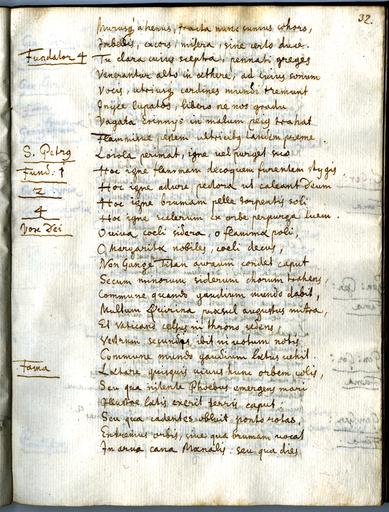 32.
nunc sumus
misera, sine certo duce.
Fundator 4 Tu clara cuius sceptra, pennati greges
Venerantur alto in aethere, ad cuius sonum
Vocis, utriusq cardines mundi tremunt
Inijce lupatos, libero ne nos gradu
Vagata Erinnys in malum trahat
Flammisue pestem ultricib tandem preme.
S. Petrg Loiola perimat, igne vel purget suo
Fund. 1 Hoc igne flammam decoquem furentem stygis
2. Hoc igne adure pectora ut caleant Deum
4 Hoc igne brumam pelle serpentis soli
Vox Dei Hoc igne scelerum ex orbe perpurga luem.
O viva coeli sidera, o flammae poli,
O Margaritae nobiles, coeli decus,
Non Gange Titan aureum condet caput
Secum minorum siderum chorum trahens
Commune quando gaudium mundo dabit,
Multum augustus mitra,
Et Vaticano celsus in throno sedens,
Vestrum secundus ibit in votum
Commune mundo gaudium laetus vehit.
Fama Laetare quisquis nunc orbem colis,
Seu qua nitente Phoebus emergens mari
laetis exerit terris caput
Seu qua cadentes abluit ponto rotas,
Extremus orbis, siue qua brumam vocat
In arua cana Maenalis: seu qua dies